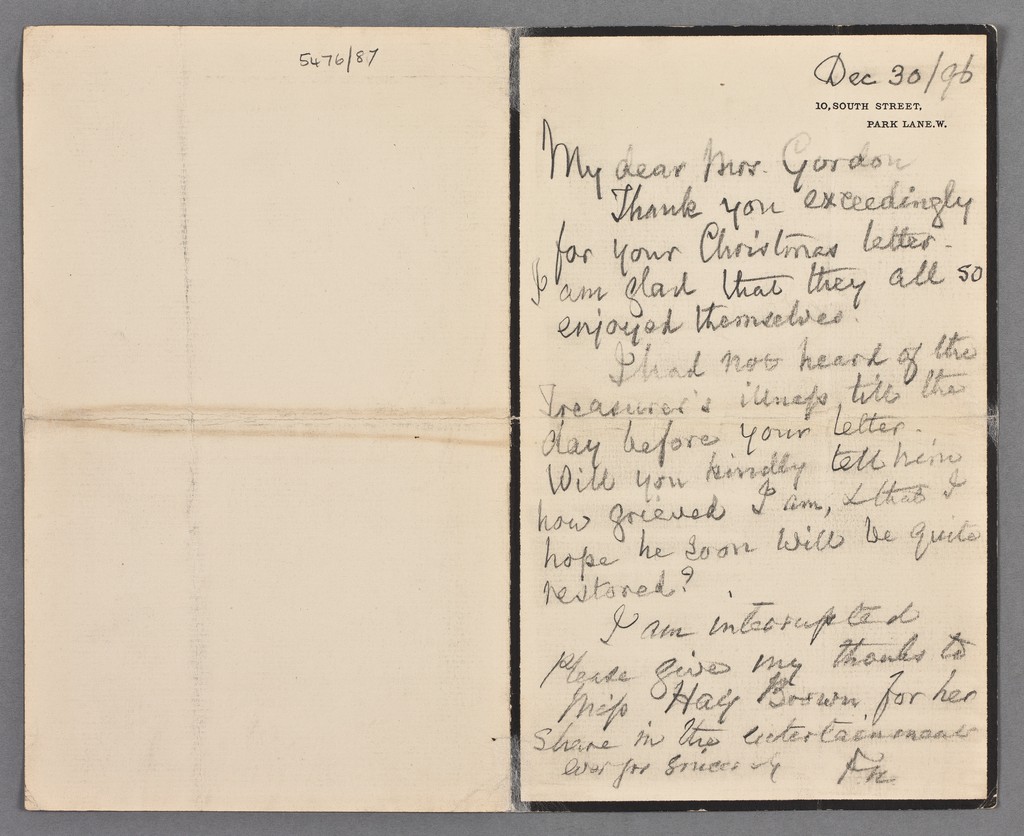 5476/87
Dec 30/96
10, SOUTH STREET,
PARK LANE. W.
My dear Mrs. Gordon
Thank you exceedingly
for your Christmas letter.
I am glad that they all so
enjoyed themselves.
I had not heard of the
Treasurer's illness till the
day before your letter.
Will you kindly tell him
how grieved I am, & that I
hope he soon will be quite
restored?
I am interrupted
Please give my thanks to
Miss Hay Brown for her
share in the entertainment
ever yrs sincerely
FN